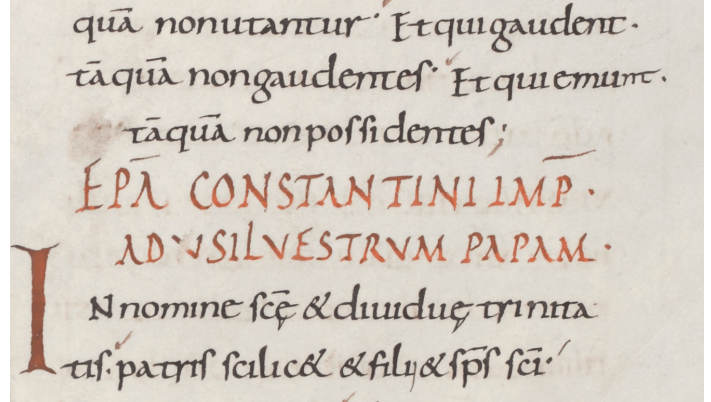 quā non utantur· Et qui gaudent·
tāquā non gaudentes· Et qui emunt·
tāquā non possidentes;
EPĀ CONSTANTINI IMP̄·
AD VSILVESTRVM PAPAM·
IN nomine scē & diuiduę trinita
tis· patris scilic& & filii & sp̄s scī·